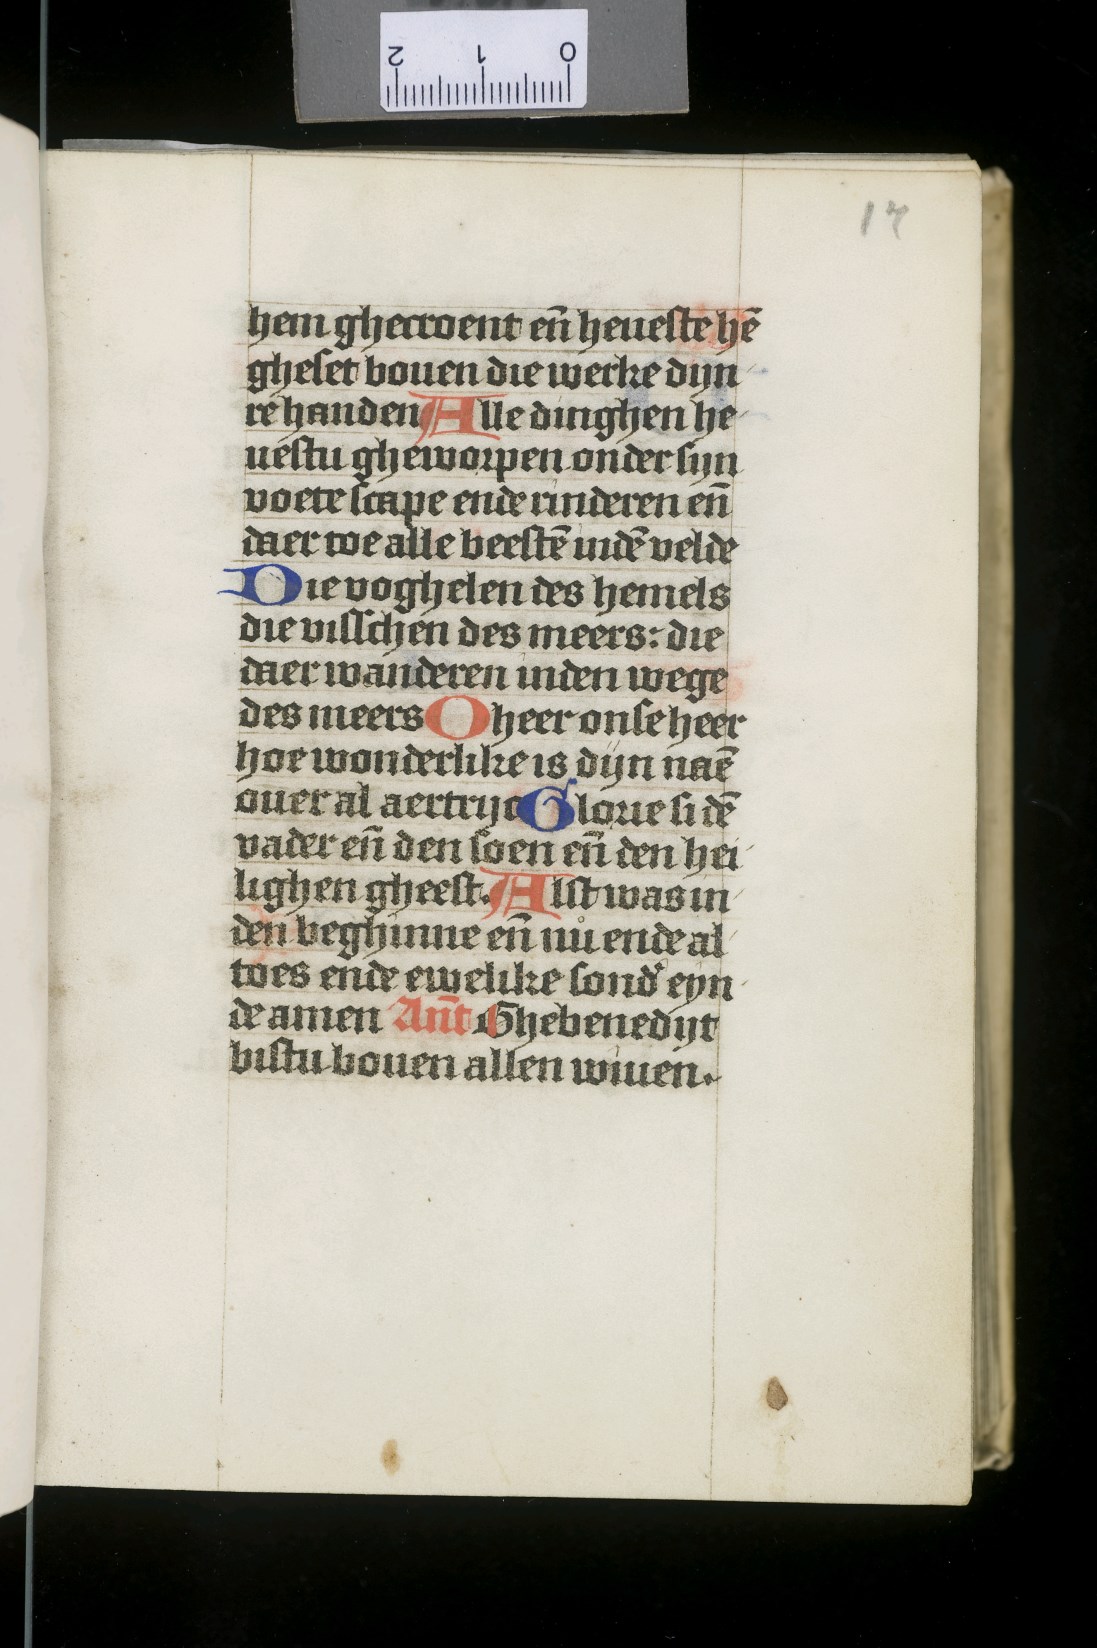 2 1 0
17
hem ghecroent en̄ heueste hē
gheset bouen die werke dijn
re handen Alle dinghen he
uestu gheworpen onder sijn
voete scape ende rinderen en̄
daer toe alle beestē indē velde
Die voghelen des hemels
die visschen des meers: die
daer wanderen inden wege
des meers O heer onse heer
hoe wonderlike is dijn naē
ouer al aertrijc Glorie si dē
vader en̄ den soen en̄ den hei
lighen gheest. Alst was in
den beghinne en̄ nu ende al
toes ende ewelike sond' eyn
de amen An̄t Ghebenedijt
bistu bouen allen wiuen.